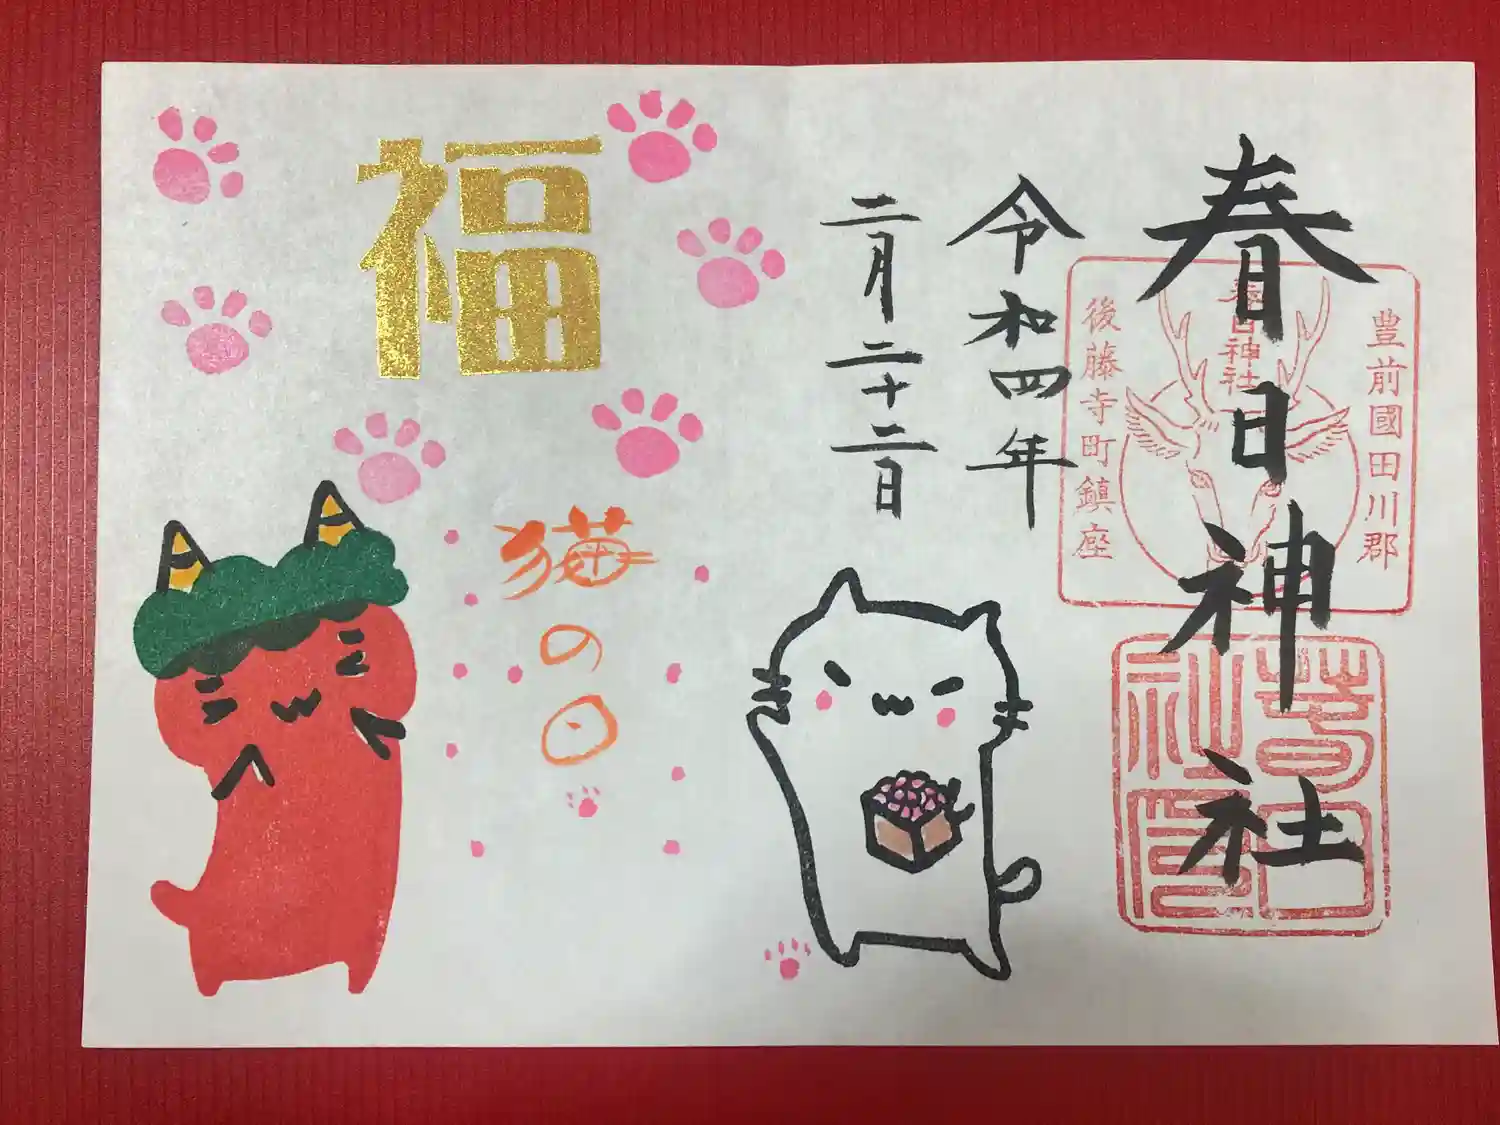 春日神社
豊前國田川郡
春日神社
後藤寺町鎮座
令和四年
二月二十二日
福
猫の日